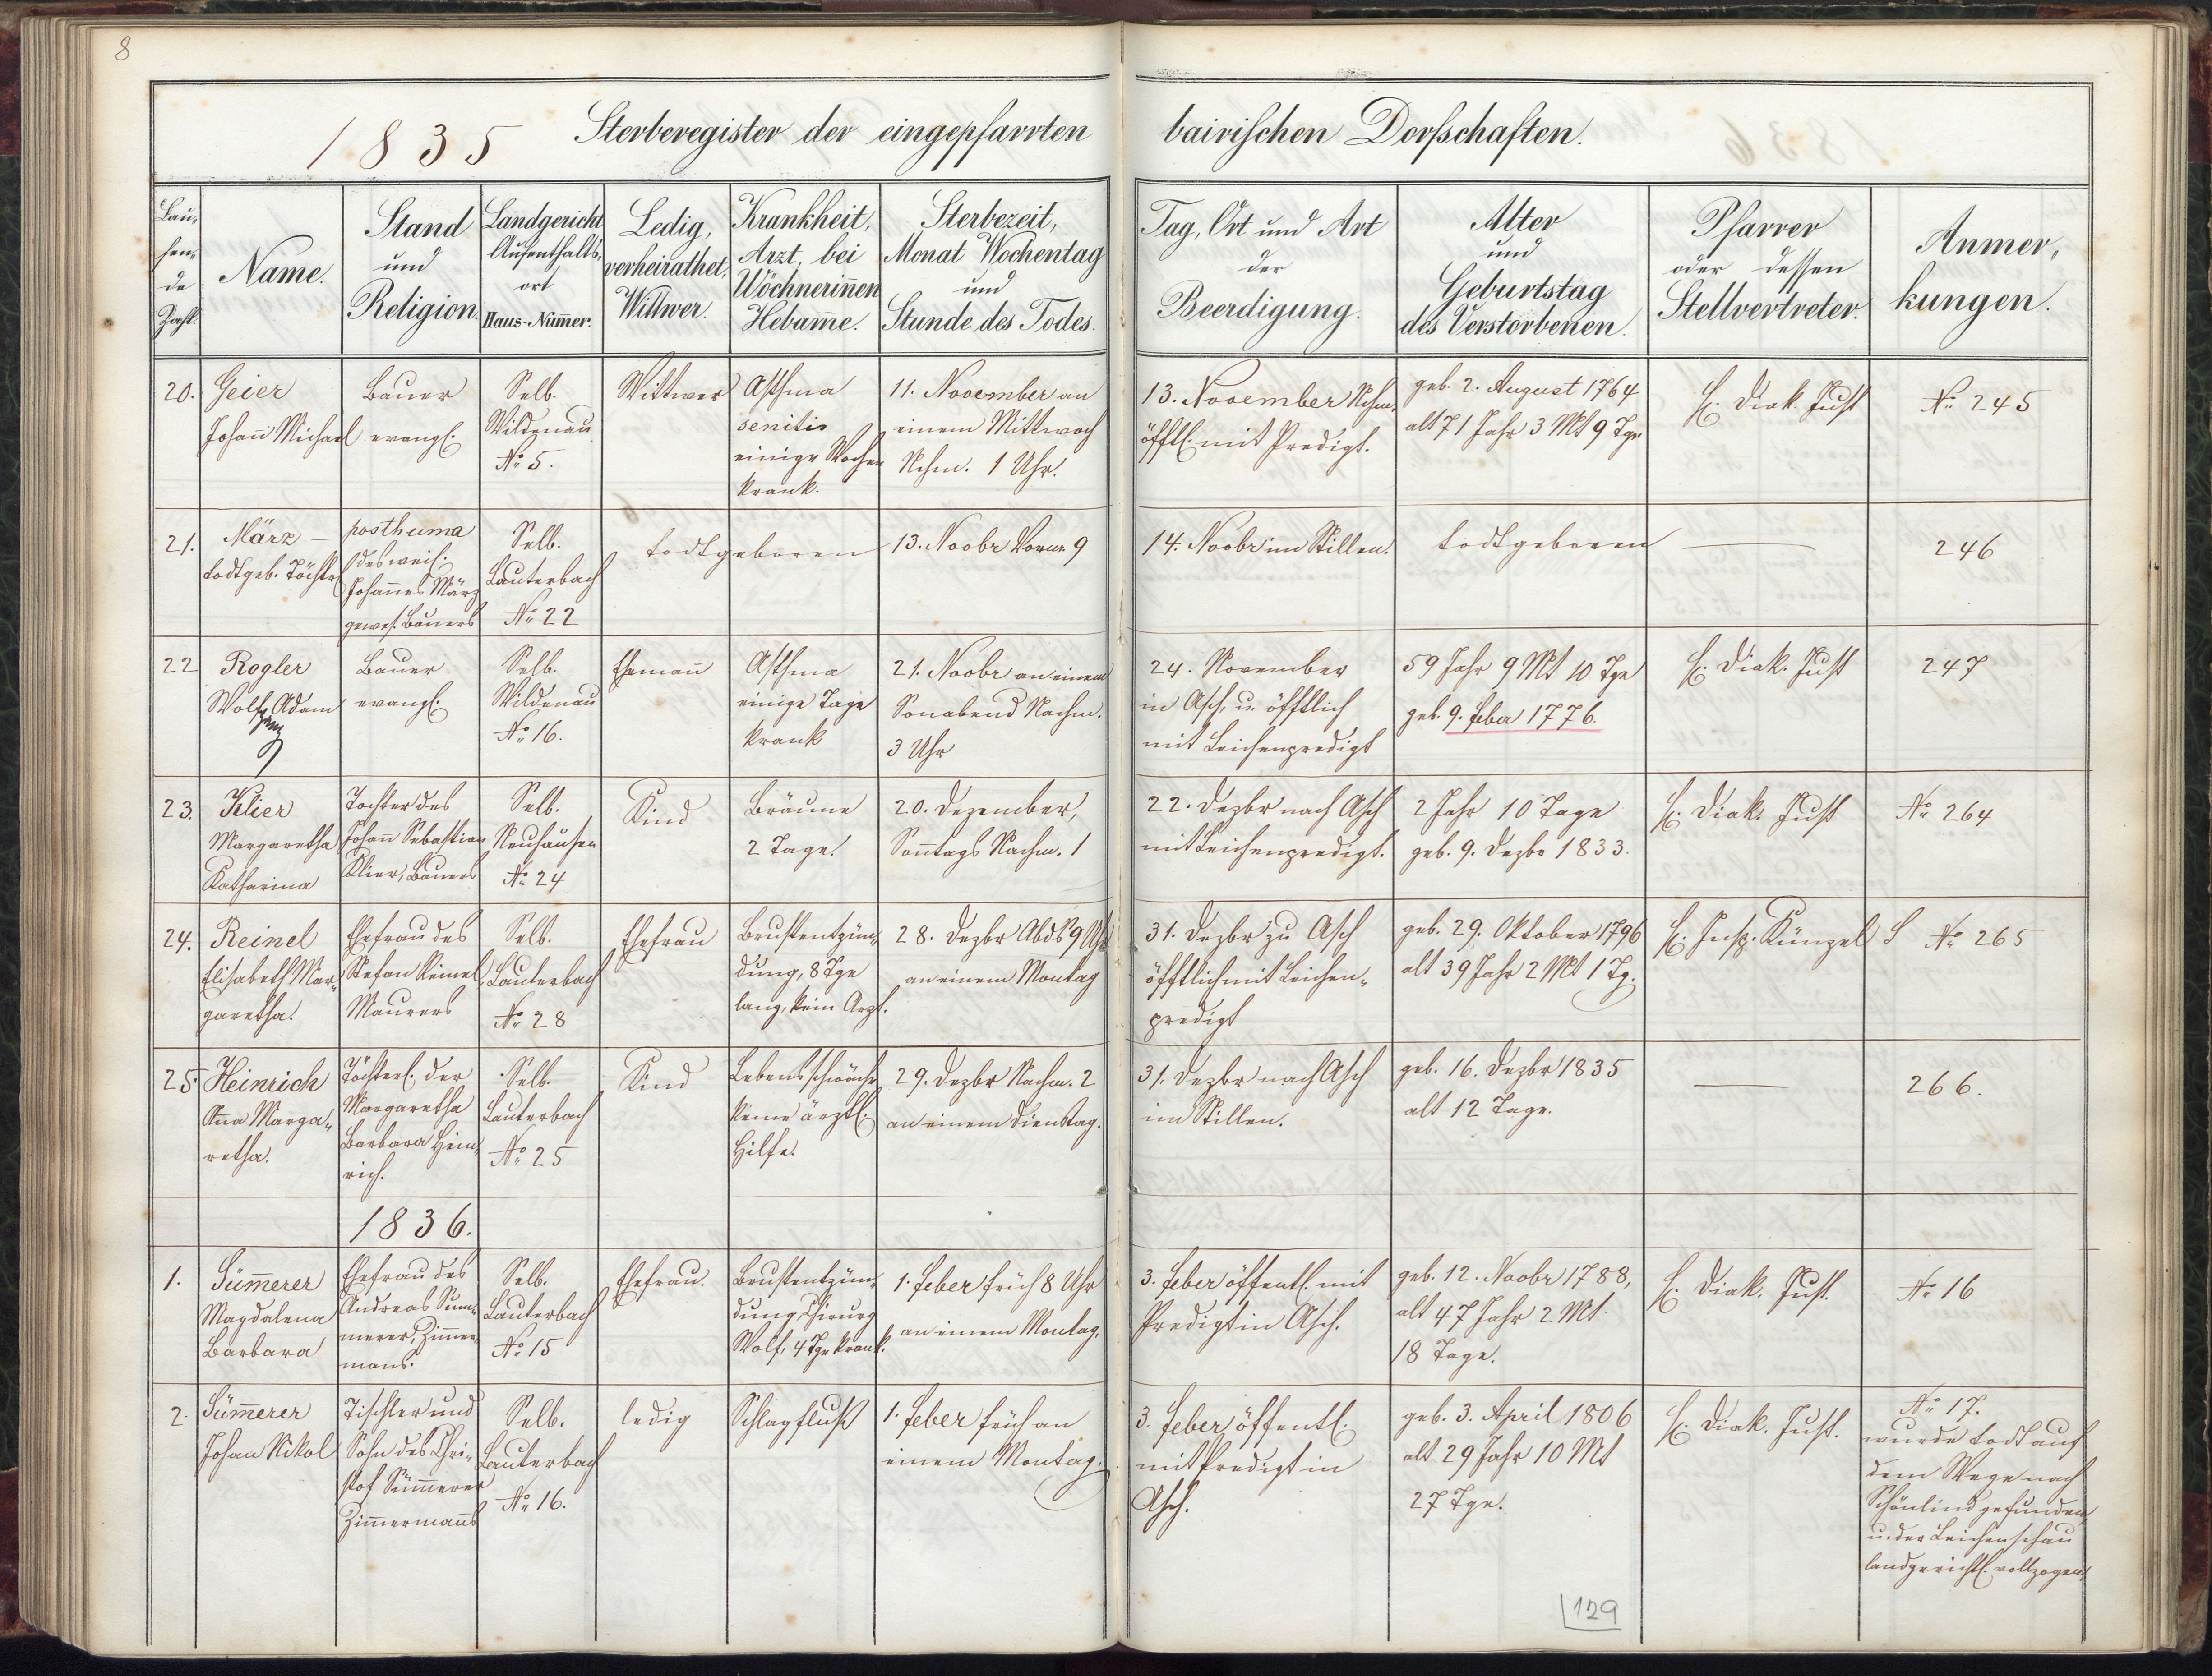 8
1835 Sterberegister der eingepfarrten bairischen Dorfschaften.
Lau-
fen-
de
Zahl.
Name.
Stand
und
Religion.
Landgericht
Aufenthalts-
ort
Haus-Num̅er.
Ledig,
verheirathet,
Wittwer.
Krankheit,
Arzt, bei
Wöchnerin̅en
Hebam̅e.
Sterbezeit,
Monat Wochentag
und
Stunde des Todes.
Tag, Ort und Art
der
Beerdigung.
Alter
und
Geburtstag
des Verstorbenen.
Pfarrer
oder dessen
Stellvertreter.
Anmer-
kungen.
20.
Geier
Johan̅ Michael
Bauer
evangl.
Selb.
Wildenau
No 5.
Wittwer
Asthma
senitis
einige Wochen
krank.
11. November an
einem Mittwoch
Nchm. 1 Uhr.
13. November Nchm.
öfftl. mit Predigt.
geb. 2. August 1764
alt 71 Jahr 3 Mt 9 Tge
H. Diak. Just
No 245
21.
März –
todtgeb. Töchterl
posthuma
des weil.
Johan̅es März
gewes. Bauers
Selb.
Lauterbach
No 22
todtgeboren
13. Novbr Vorm. 9
14. Novbr im Stillen.
todtgeboren
246
22
Rogler
Wolf Adam
Bauer
evangl.
Selb.
Wildenau
No 16.
Eheman̅
Asthma
einige Tage
krank
21. Novbr an einem
Sonabend Nachm.
3 Uhr
24. November
in Asch, u. öfftlich
mit Leichenpredigt
59 Jahr 9 Mt 10 Tge
geb. 9. feber 1776.
H. Diak. Just
247
23.
Klier
Margaretha
Katharina
Tochter des
Johan̅ Sebastian
Klier, Bauers
Selb.
Neuhausen
No 24
Kind
Bräune
2 Tage.
20. Dezember,
Son̅tags Nachm. 1
22. Dezbr nach Asch
mit Leichenpredigt.
2 Jahr 10 Tage
geb. 9. Dezbr 1833.
H. Diak. Just
No 264
24.
Reinel
Elisabeth Mar-
garetha.
Ehefrau des
Stefan Reinel,
Maurers
Selb.
Lauterbach
No 28
Ehefrau
Brustentzün-
dung, 8 Tge
lang, kein Arzt.
28. Dezbr Abds 9 Uhr
an einem Montag
31. Dezbr zu Asch
öfftlich mit Leichen-
predigt
geb. 29. Oktober 1796
alt 39 Jahr 2 Mt 1 Tg.
H. Insp. Künzel S
No 265
25.
Heinrich
An̅a Marga-
retha.
Töchterl. der
Margaretha
Barbara Hein-
rich.
Selb.
Lauterbach
No 25
Kind
Lebensschwäche
keine ärztl.
Hilfe.
29. Dezbr Nachm. 2
an einem Dienstag.
31. Dezbr nach Asch
im Stillen.
geb. 16. Dezbr 1835
alt 12 Tage.
266.
1836.
1.
Süm̅erer
Magdalena
Barbara
Ehefrau des
Andreas Süm-
merer, Zim̅er-
mans.
Selb.
Lauterbach
No 15
Ehefrau.
Brustentzün-
dung, Chirurg
Wolf, 4 Tge krank.
1. feber früh 8 Uhr
an einem Montag.
3. feber öffentl. mit
Predigt in Asch.
geb. 12. Novbr 1788,
alt 47 Jahr 2 Mt
18 Tage.
H. Diak. Just.
No 16
2.
Süm̅erer
Johan Nikol
Tischler und
Sohn des Chri-
stof Süm̅erer
Zim̅erman̅s
Selb.
Lauterbach
No 16.
ledig
Schlagfluß
1. feber früh an
einem Montag.
3. feber öffentl.
mit Predigt in
Asch.
geb. 3. April 1806
alt 29 Jahr 10 Mt
27 Tge.
H. Diak. Just.
No 17.
wurde todt auf
dem Wege nach
Schönlind gefunden,
u. der Leichenschau
landgerichtl. vollzogen.
129